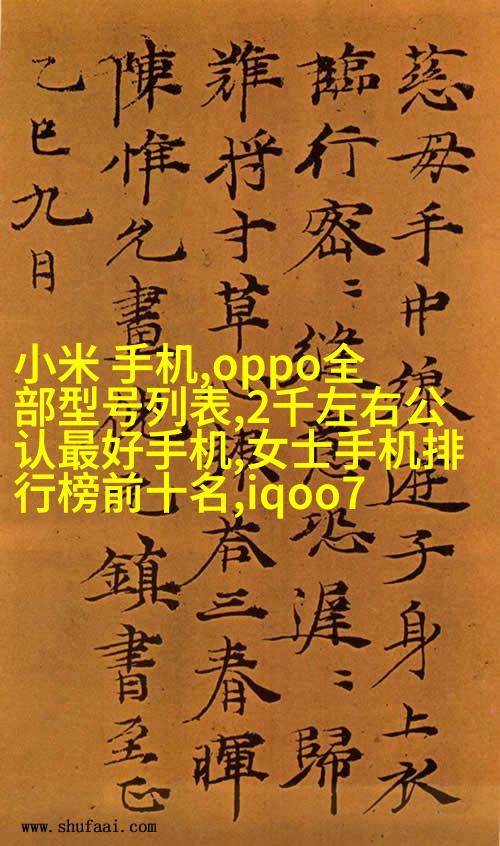 慈母手中線遊子身上衣
臨行密〻縫意恐遲〻歸
難将寸草答三春暉
陳惟允書鎮書至正
乙巳九月
小米 手机,oppo全
部型号列表,2千左右公
认最好手机,女士手机排
行榜前十名,iqoo7
www.shufaai.com